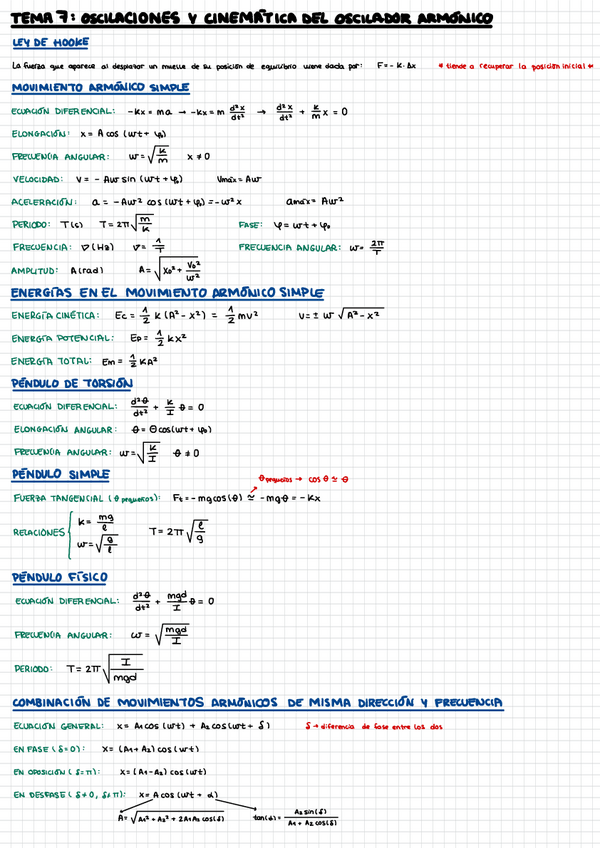 TEMA 7: OSCILACIONES Y CINEMÁTICA DEL OSCILADOR ARMÓNICO
LEY DE HOOKE
La fuerza que aparece al desplazar un muelle de su posición de equilibrio viene dada por: F = - K · Δx * tiende a recuperar la posición inicial *
MOVIMIENTO ARMÓNICO SIMPLE
ECUACIÓN DIFERENCIAL: -Kx = ma → -Kx = m d²x/dt² → d²x/dt² + k/m x = 0
ELONGACIÓN: x = A cos (ωt + φ₀)
FRECUENCIA ANGULAR: ω = √(K/m) x ≠ 0
VELOCIDAD: V = - Aω sin (ωt + φ₀) Vmáx = Aω
ACELERACIÓN: a = - Aω² cos (ωt + φ₀) = - ω² x amáx = Aω²
PERIODO: T(s) T = 2π √(m/K) FASE: φ = ωt + φ₀
FRECUENCIA: ν (Hz) ν = 1/T FRECUENCIA ANGULAR: ω = 2π/T
AMPLITUD: A (rad) A = √(x₀² + V₀²/ω²)
ENERGÍAS EN EL MOVIMIENTO ARMÓNICO SIMPLE
ENERGÍA CINÉTICA: Ec = 1/2 K (A² - x²) = 1/2 mv² v = ± ω √(A² - x²)
ENERGÍA POTENCIAL: Ep = 1/2 Kx²
ENERGÍA TOTAL: Em = 1/2 KA²
PÉNDULO DE TORSIÓN
ECUACIÓN DIFERENCIAL: d²θ/dt² + K/I θ = 0
ELONGACIÓN ANGULAR: θ = Θ cos (ωt + φ₀)
FRECUENCIA ANGULAR: ω = √(K/I) θ ≠ 0
PÉNDULO SIMPLE
θ pequeños → cos θ ≃ θ
FUERZA TANGENCIAL (θ pequeños): Ft = - mg cos (θ) ≃ - mgθ = - Kx
RELACIONES { k = mg/l
ω = √(g/l) T = 2π √(l/g)
PÉNDULO FÍSICO
ECUACIÓN DIFERENCIAL: d²θ/dt² + mgd/I θ = 0
FRECUENCIA ANGULAR: ω = √(mgd/I)
PERIODO: T = 2π √(I/mgd)
COMBINACIÓN DE MOVIMIENTOS ARMÓNICOS DE MISMA DIRECCIÓN Y FRECUENCIA
ECUACIÓN GENERAL: x = A₁ cos (ωt) + A₂ cos (ωt + δ) δ → diferencia de fase entre los dos
EN FASE (δ = 0): x = (A₁ + A₂) cos (ωt)
EN OPOSICIÓN (δ = π): x = (A₁ - A₂) cos (ωt)
EN DESFASE (δ ≠ 0, δ ≠ π): x = A cos (ωt + α)
A = √(A₁² + A₂² + 2A₁A₂ cos(δ)) tan(α) = A₂ sin(δ) / A₁ + A₂ cos(δ)